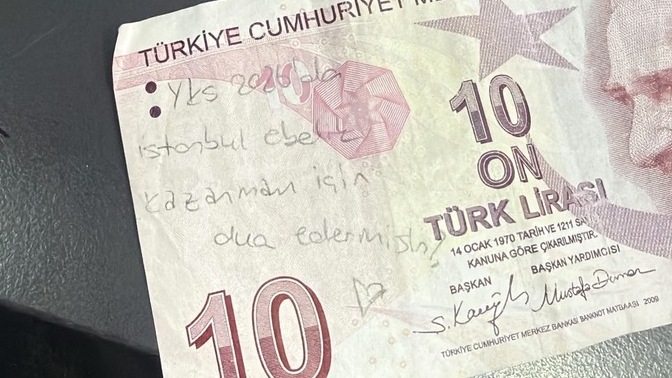 TÜRKİYE CUMHURİYET ME
YKS 2026'da
istanbul ebelik
kazanmam için
dua edermisin?
10
ON
TÜRK LİRASI
14 OCAK 1970 TARİH VE 1211 SA
KANUNA GÖRE ÇIKARILMIŞTIR.
BAŞKAN
BAŞKAN YARDIMCISI
10
TÜRKİYE CUMHURİYET MERKEZ BANKASI BANKNOT MATBAASI 2009